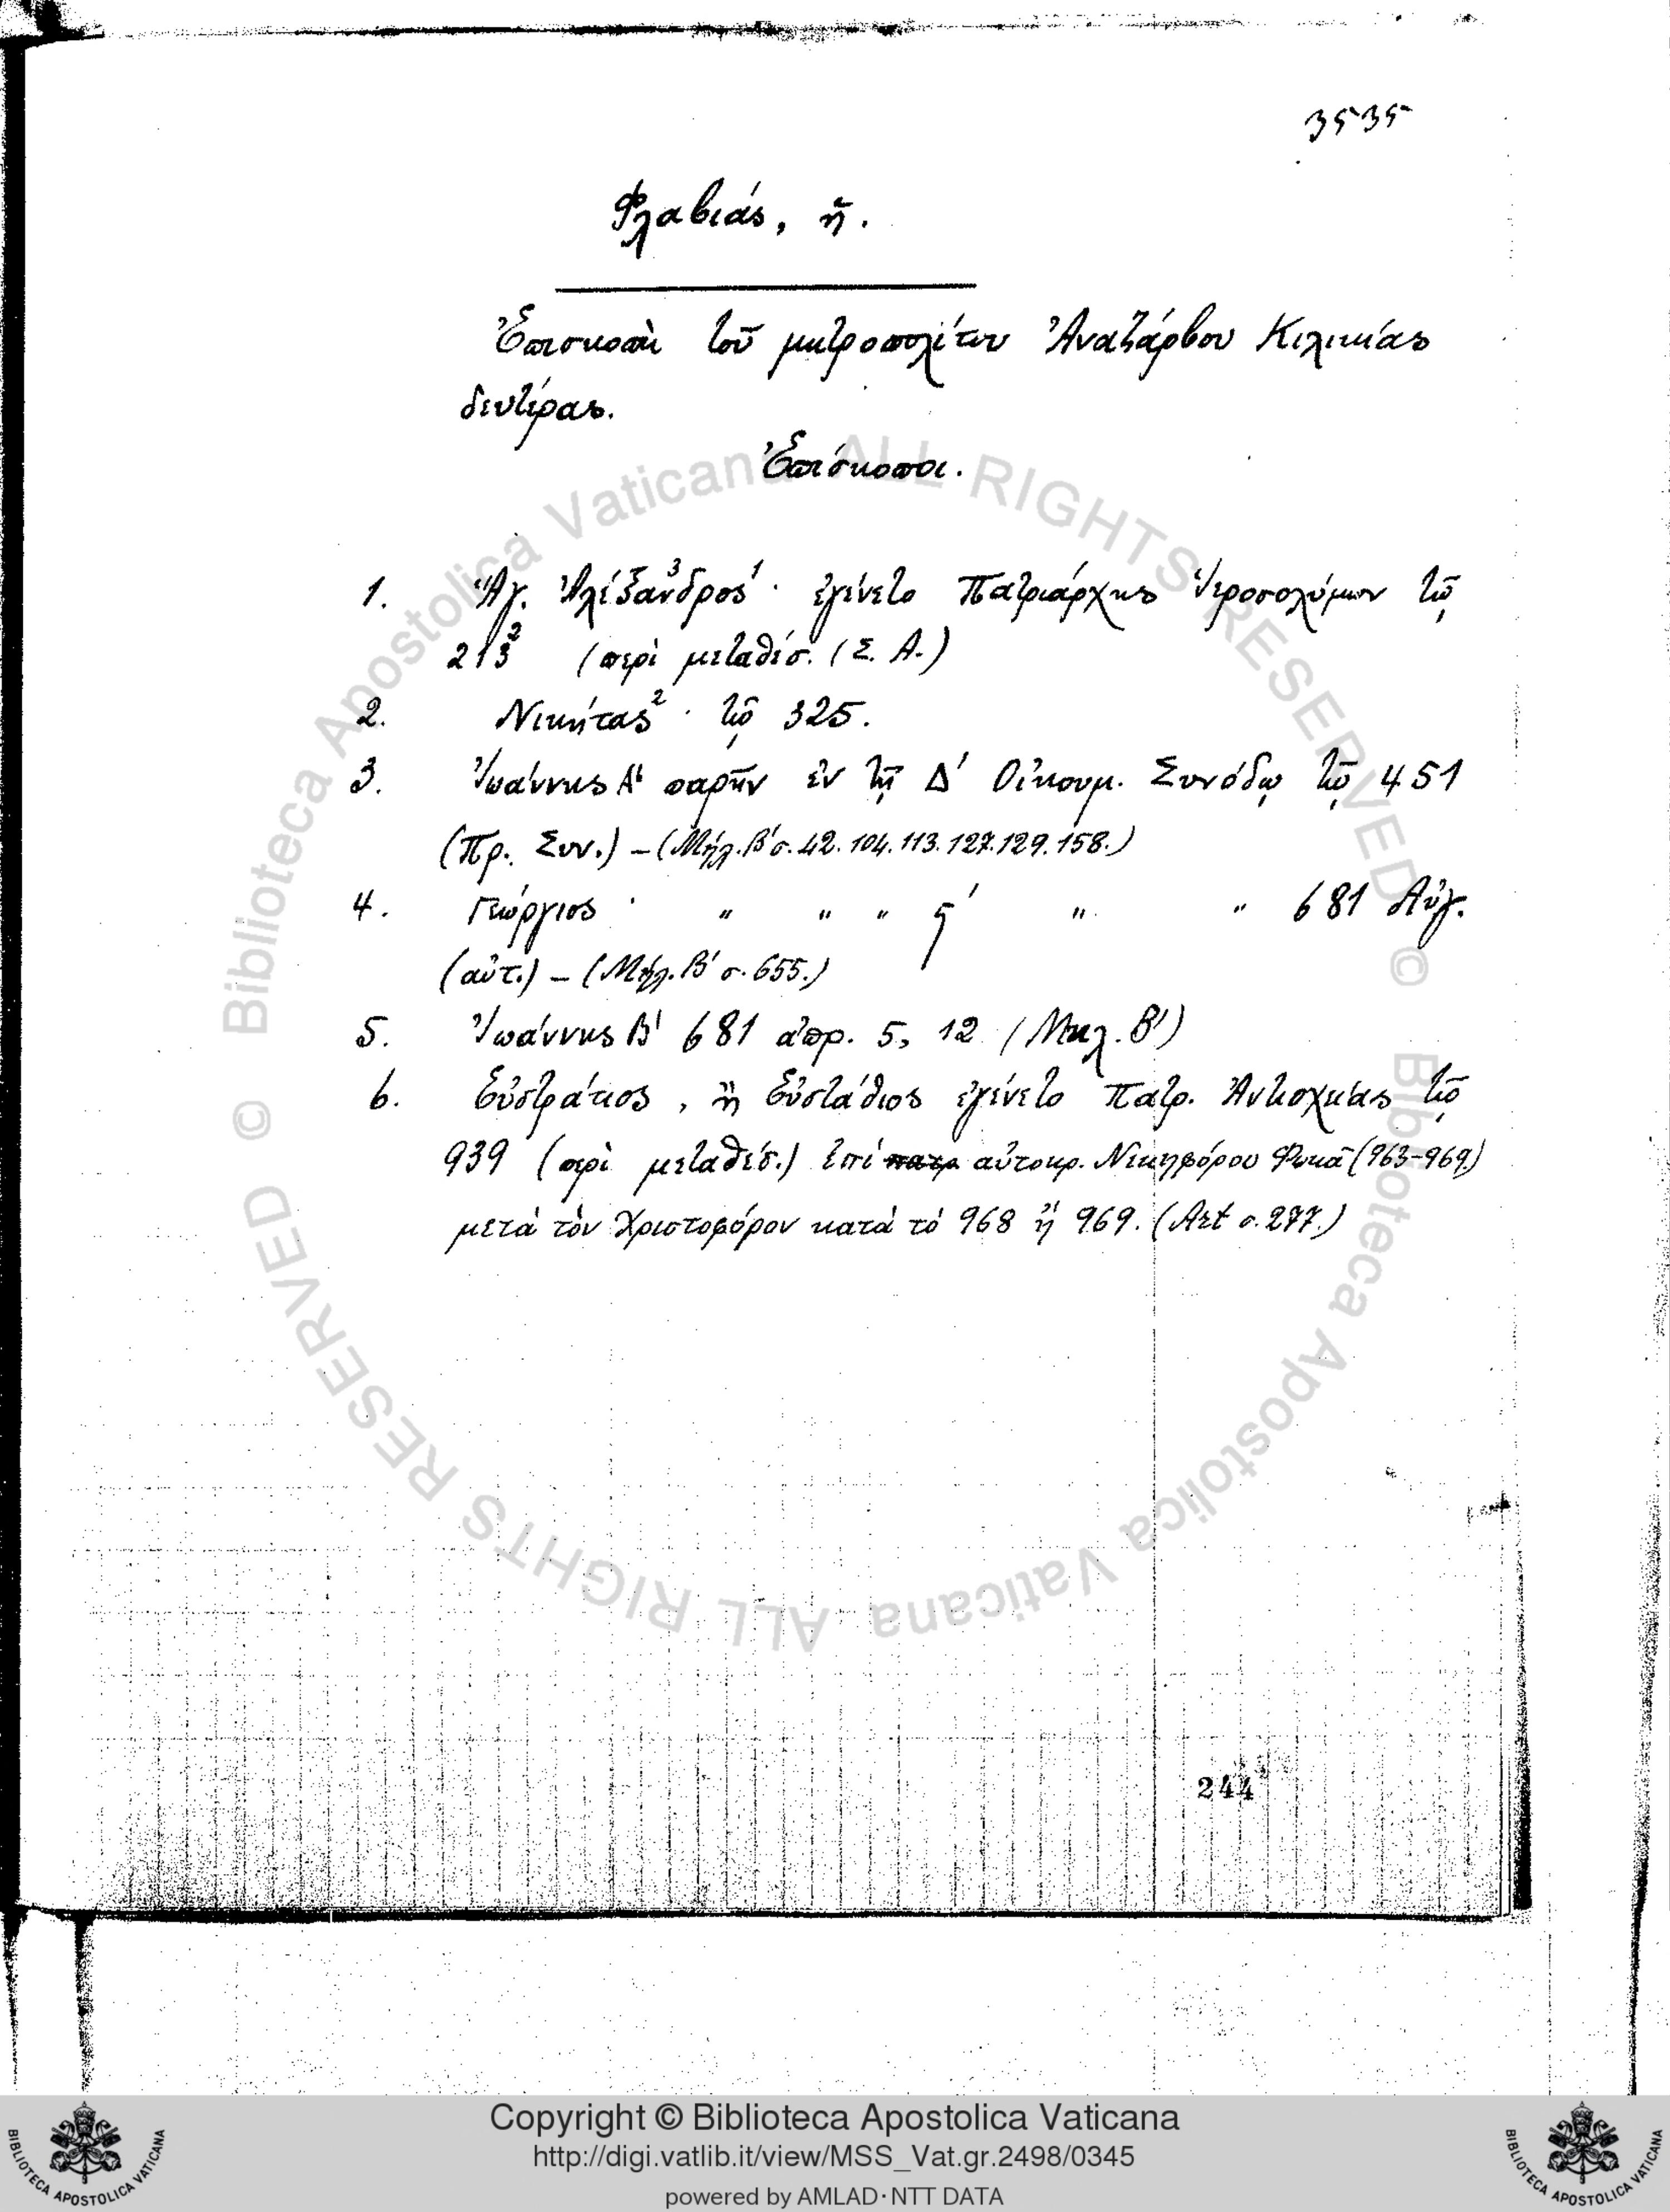 3535
Φλαβιάς, ἡ.
Ἐπισκοπὴ τοῦ μητροπολίτου Ἀναζάρβου Κιλικίας
δευτέρας.
Ἐπίσκοποι.
1. Ἅγ. Ἀλέξανδρος¹ · ἐγένετο Πατριάρχης Ἱεροσολύμων τῷ
213² (περὶ μεταθέσ. (Σ. Α.)
2. Νικήτας² · τῷ 325.
3. Ἰωάννης Α' παρῆν ἐν τῇ Δ' Οἰκουμ. Συνόδῳ τῷ 451
(Πρ. Συν.) – (Μήλ. Β' σ. 42. 104. 113. 127. 129. 158.)
4. Γεώργιος · " " " ς' " " 681 Αὔγ.
(αὐτ.) – (Μήλ. Β' σ. 655.)
5. Ἰωάννης Β' 681 ἀπρ. 5, 12 (Μηλ. Β')
6. Εὐστράτιος, ἢ Εὐστάθιος ἐγένετο Πατρ. Ἀντιοχείας τῷ
939 (περὶ μεταθέσ.) ἐπί πατρ αὐτοκρ. Νικηφόρου Φωκᾶ (963-969)
μετά τὸν Χριστοφόρον κατά τό 968 ἤ 969. (Ἀετ σ. 277.)
244
Biblioteca Apostolica Vaticana ALL RIGHTS RESERVED ©
Biblioteca Apostolica Vaticana ALL RIGHTS RESERVED ©
Copyright © Biblioteca Apostolica Vaticana
http://digi.vatlib.it/view/MSS_Vat.gr.2498/0345
powered by AMLAD·NTT DATA
BIBLIOTECA APOSTOLICA VATICANA
BIBLIOTECA APOSTOLICA VATICANA